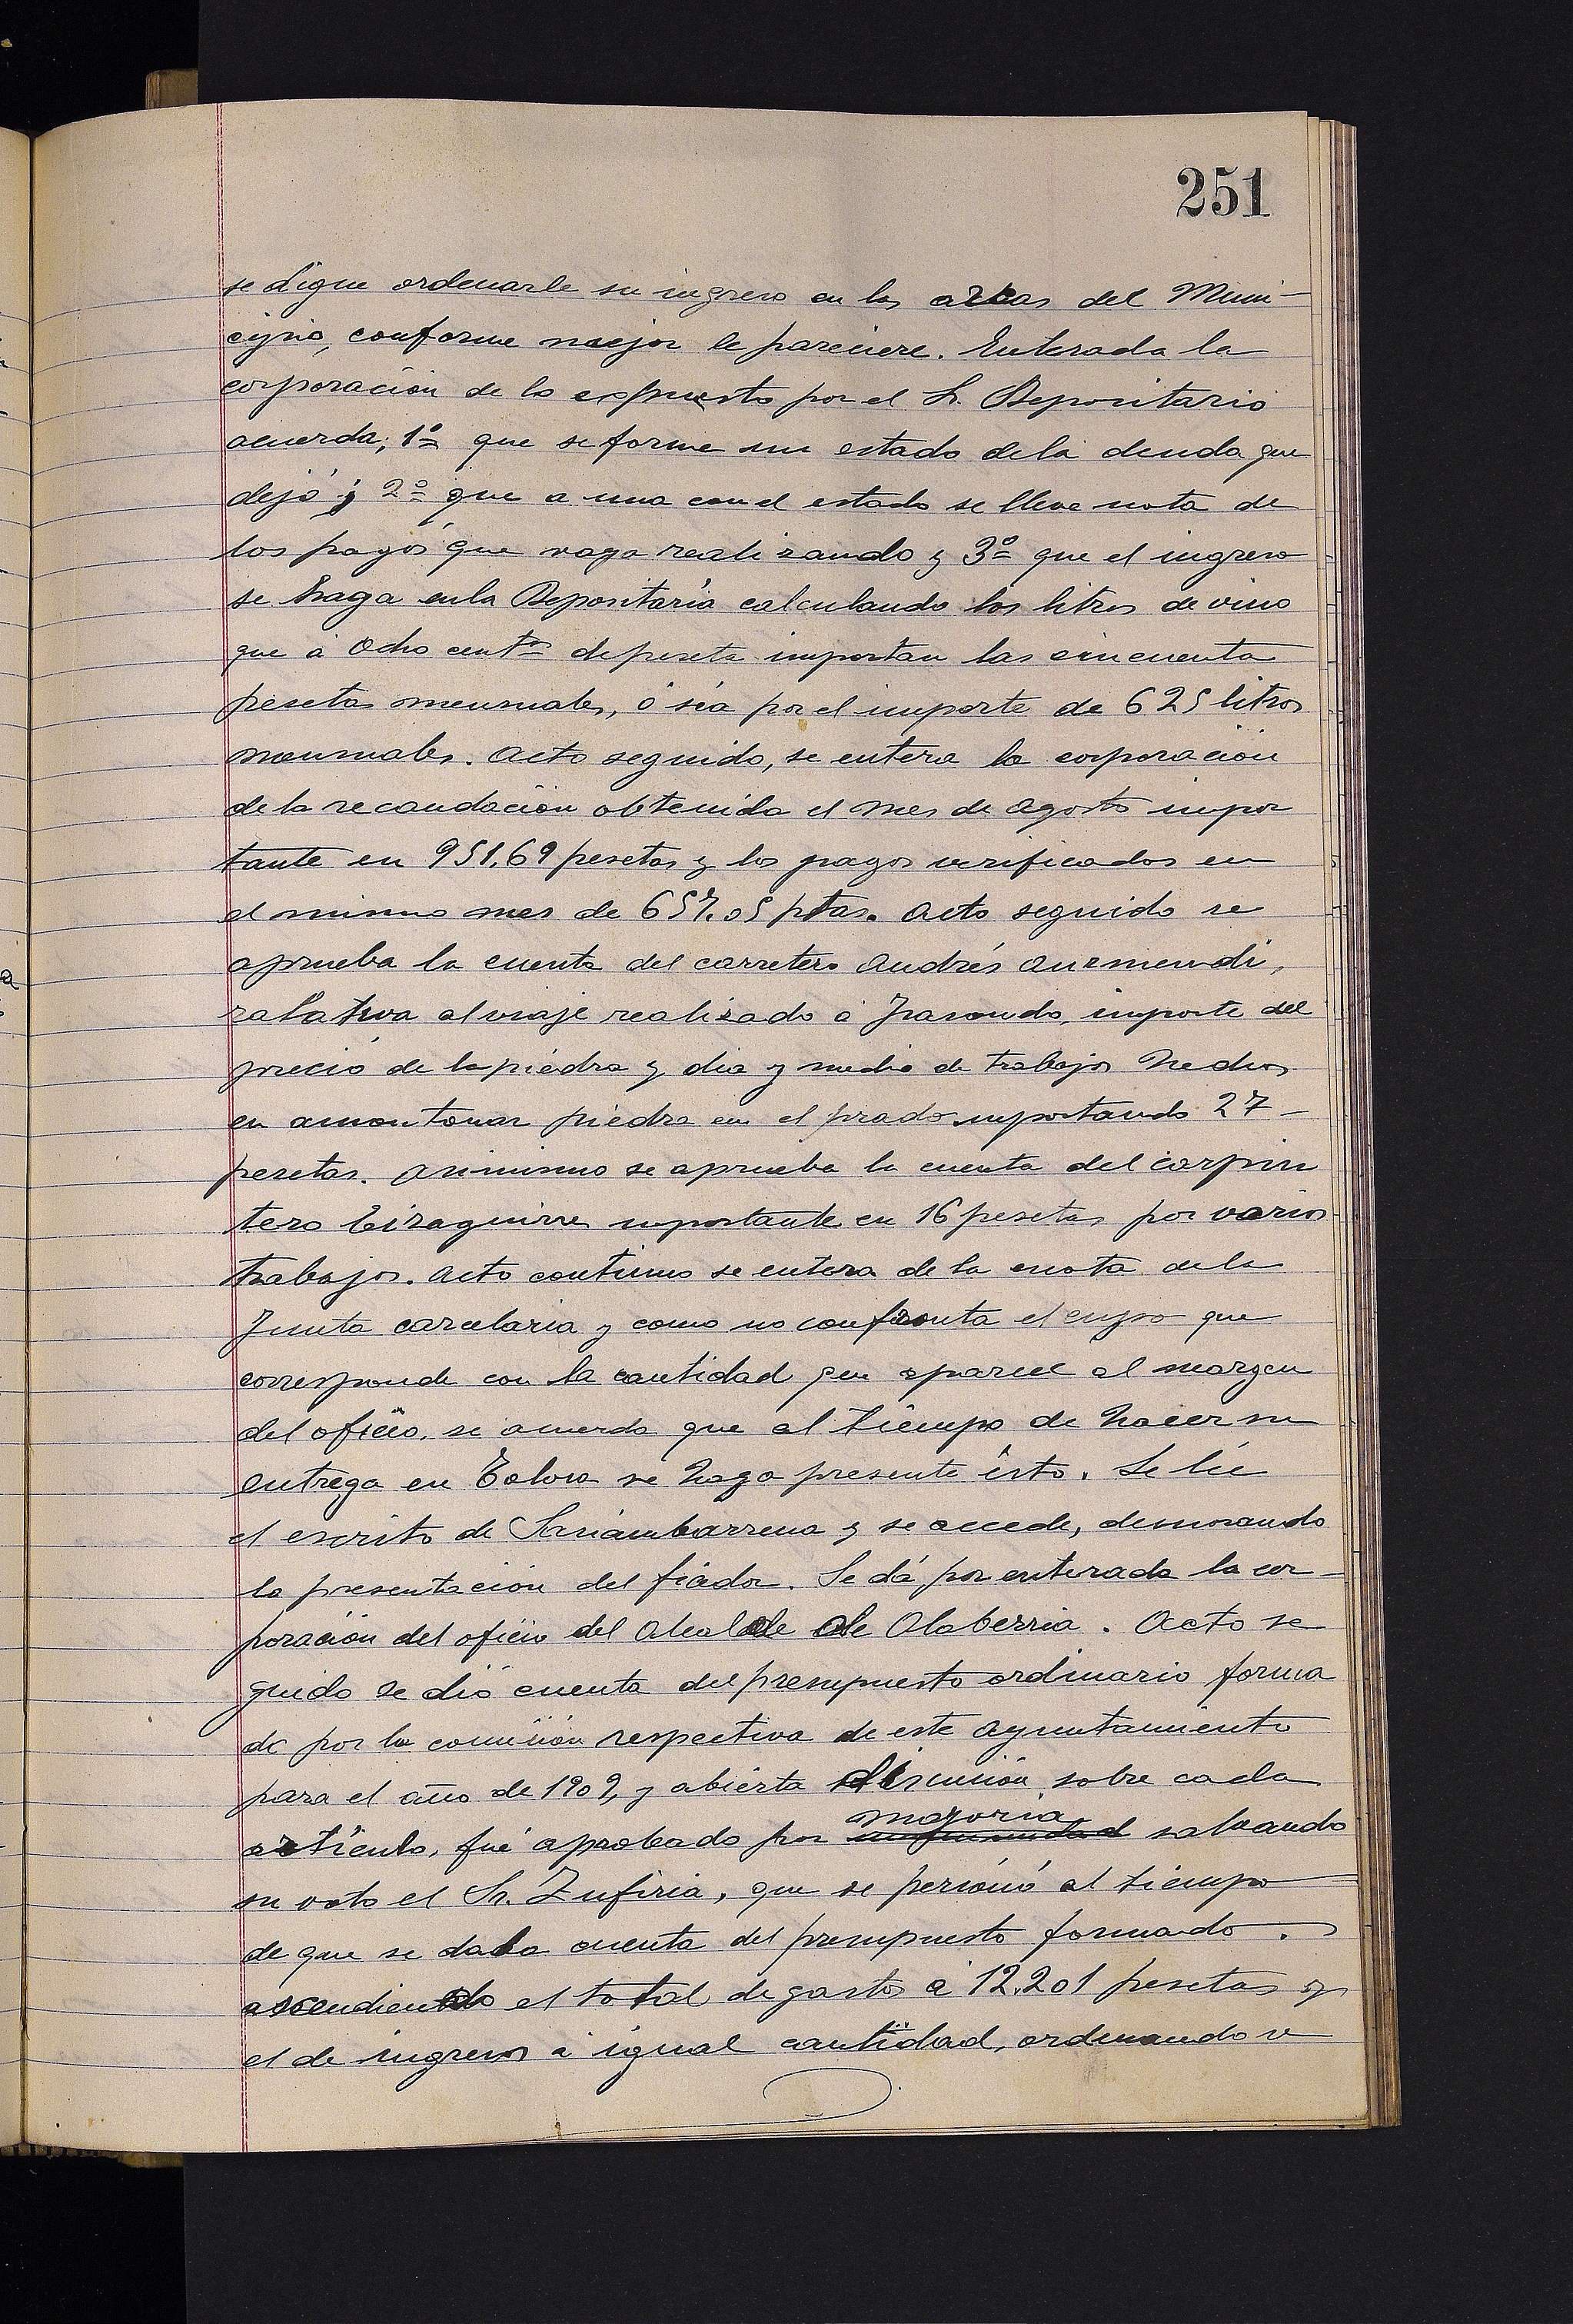 251
se digne ordenarle su ingreso en las arcas del Muni-
cipio, conforme mejor le pareciere. Enterada la
corporación de lo expuesto por el Sr. Depositario
acuerda; 1º que se forme un estado de la deuda que
dejó y 2º que a una con el estado se lleve nota de
los pagos que vaya realizando y 3º que el ingreso
se haga en la Depositaría calculando los litros de vino
que á ocho cents de peseta importan las cincuenta
pesetas mensuales, ó séa por el importe de 625 litros
mensuales. Acto seguido, se entera la corporación
de la recaudación obtenida el mes de Agosto impor
tante en 951,69 pesetas y los pagos verificados en
el mismo mes de 657.05 ptas. Acto seguido se
aprueba la cuenta del carretero Andrés Aurmendi,
relativa al viaje realizado á importe del
precio de la piedra y dia y medio de trabajos hechos
en amontonar piedra en el prado importando 27-
pesetas. Asimismo se aprueba la cuenta del carpin
tero Eizaguirre importante en 16 pesetas por varios
trabajos. Acto continuo se entera de la cuota de la
Junta carcelaria y como no confronta el cupo que
corresponde con la cantidad que aparece al margen
del oficio, se acuerda que al tiempo de hacer su
entrega en Tolosa se haga presente ésto. Se lée
el escrito de Sariambarrena y se accede, demorando
la presentación del fiador. Se dá por enterada la cor-
poración del oficio del Alcalde de Olaberria. Acto se
guido se dió cuenta del presupuesto ordinario forma
do por la comisión respectiva de este Ayuntamiento
para el año de 1909, y abierta discusión sobre cada
artículo, fué aprobado por mayoria salvando
su voto el Sr. Zufiria, que se personó al tiempo
de que se daba cuenta del presupuesto formado.
ascendiendo el total de gastos á 12.201 pesetas y
el de ingresos á igual cantidad, ordenando se